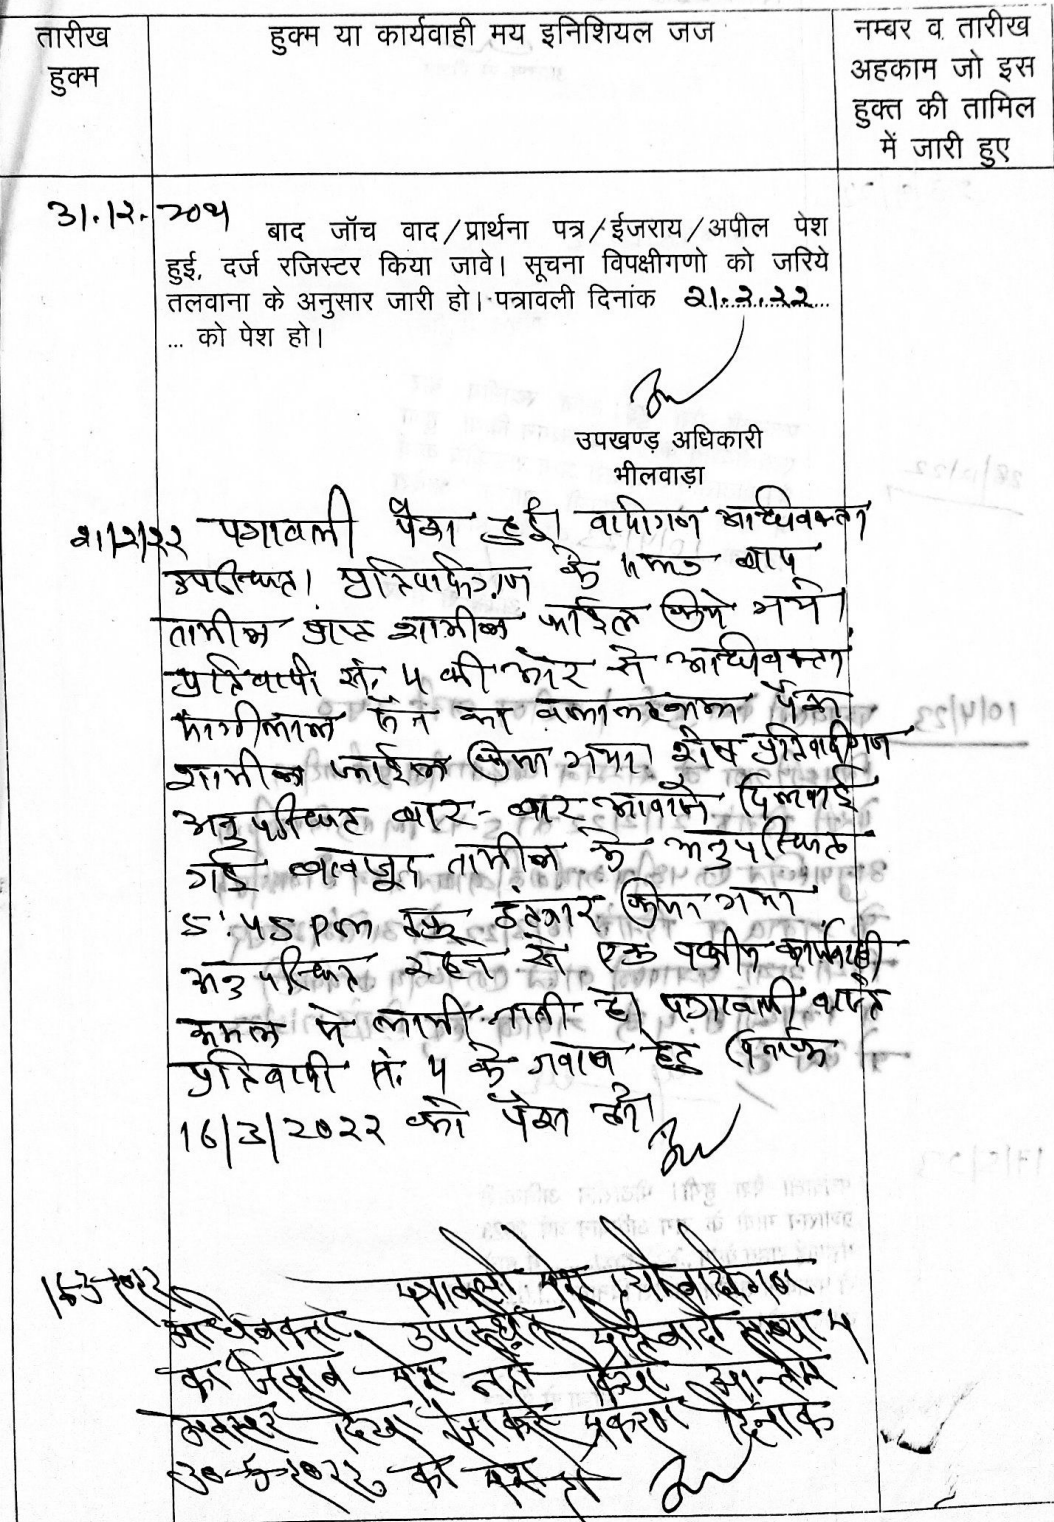 तारीख
हुक्म
हुक्म या कार्यवाही मय इनिशियल जज
नम्बर व तारीख
अहकाम जो इस
हुक्त की तामिल
में जारी हुए
31.12.2021
बाद जॉच वाद/प्रार्थना पत्र/ईजराय/अपील पेश
हुई, दर्ज रजिस्टर किया जावे। सूचना विपक्षीगणो को जरिये
तलवाना के अनुसार जारी हो। पत्रावली दिनांक 21.2.22
... को पेश हो।
उपखण्ड़ अधिकारी
भीलवाड़ा
21/2/22 पत्रावली पेश हुई। वादीगण अधिवक्ता
उपस्थित। प्रतिवादीगण के बाद
तामील प्राप्त शामील फाईल किये गये।
प्रतिवादी सं. 4 की ओर से अधिवक्ता
जैन का वकालतनामा पेश
शामील फाईल किया गया। शेष प्रतिवादीगण
अनुपस्थित बार-बार आवाजे दिलवाई
गई बावजूद तामील के अनुपस्थित
5:45 pm तक इंतजार किया गया
अनुपस्थित रहने से एक पक्षीय कार्यवाही
अमल मे लायी जाती है। पत्रावली वास्ते
प्रतिवादी सं. 4 के जवाब हेतु दिनांक
16/3/2022 को पेश हो।
16-3-2022
पत्रावली पेश हुयी वादीगण
अधिवक्ता उपस्थित प्रतिवादी संख्या 4
का जवाब पेश नही किया अन्तिम
अवसर दिया जाकर प्रकरण दिनांक
30-5-2022 को पेश हो